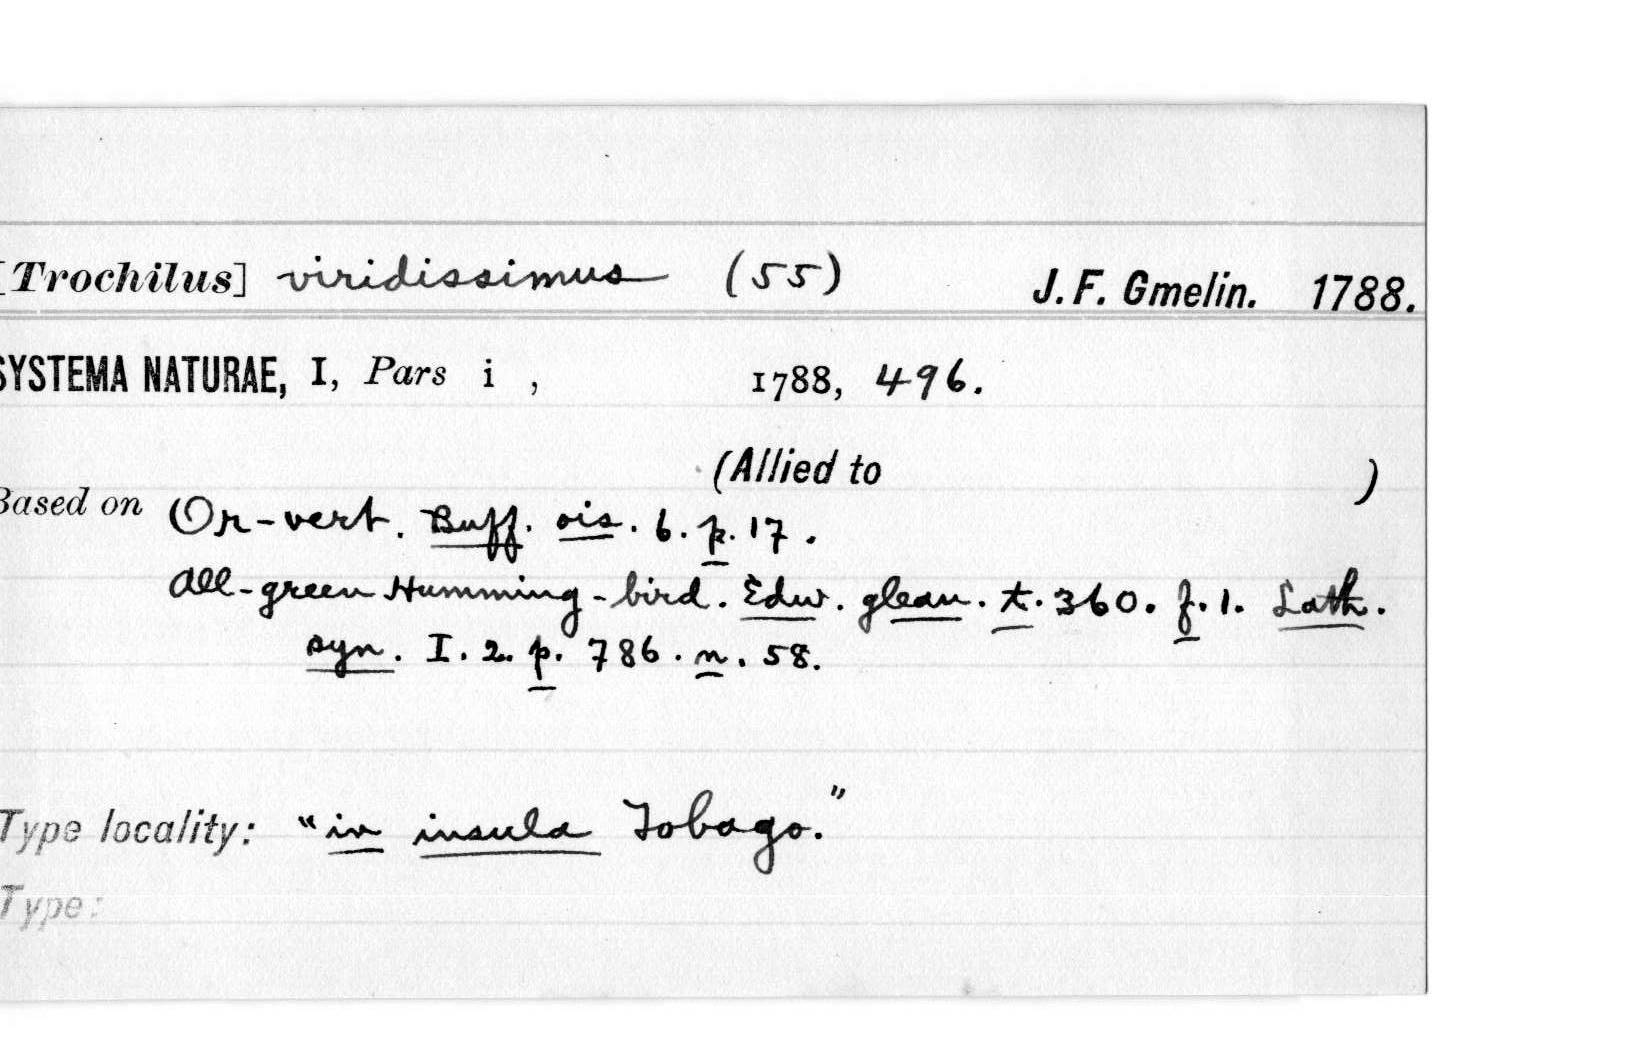 [Trochilus] viridissimus (55) J. F. Gmelin. 1788.
SYSTEMA NATURAE, I, Pars i , 1788, 496.
(Allied to )
Based on Or-vert. Buff. ois. 6. p. 17.
All-green Humming-bird. Edw. glean. t. 360. f. 1. Lath.
syn. I. 2. p. 786. n. 58.
Type locality: "in insula Tobago."
Type: